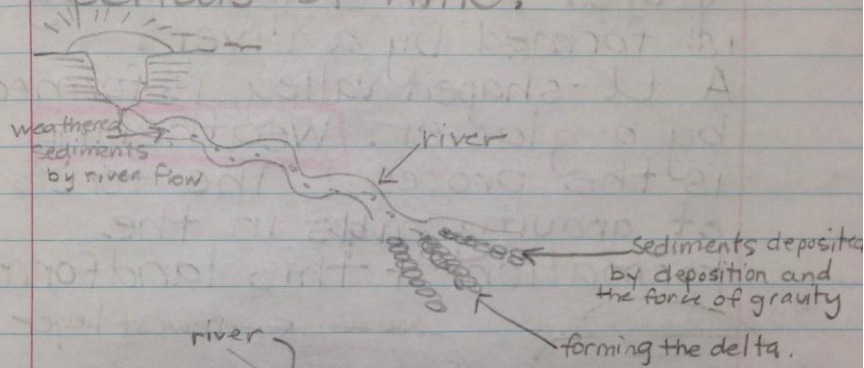 periods of time.
weathered
sediments
by river flow
river
sediments deposited
by deposition and
the force of gravity
forming the delta.
river